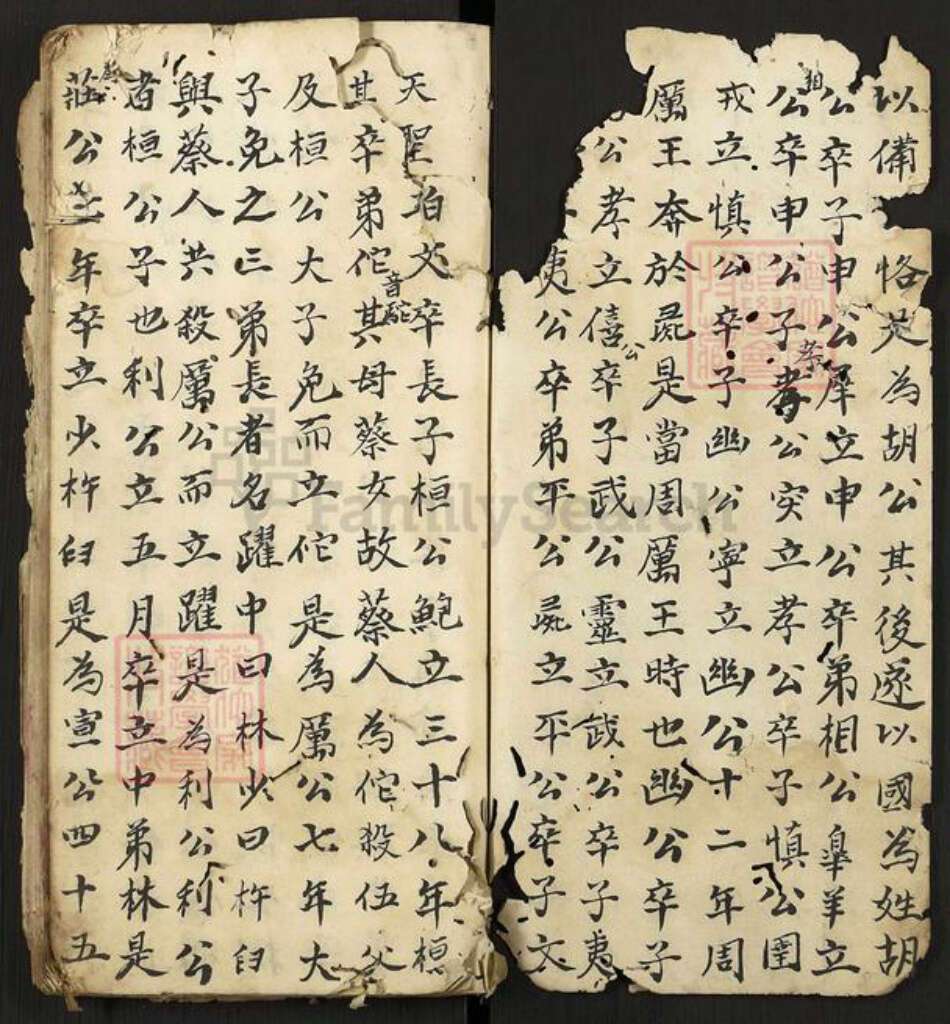 以備恪是為胡公其後遂以國為姓胡
公卒子申公犀立申公卒弟相公皋羊立
相
公卒申公子孝公突立孝公卒子慎公圉
孝
戎立慎公卒子幽公寧立幽公十二年周
厲王奔於彘是當周厲王時也幽公卒子
公孝立僖卒子武公靈立武公卒子夷
公
夷公卒弟平公彘立平公卒子文
天聖珀父卒長子桓公鮑立三十八年桓
其卒弟佗其母蔡女故蔡人為佗殺伍父
音駝
及桓公大子免而立佗是為厲公七年大
子免之三弟長者名躍中曰林少曰杵臼
與蔡人共殺厲公而立躍是為利公利公
者桓公子也利公立五月卒立中弟林是
莊公立年卒立少杵臼是為宣公四十五
FamilySearch